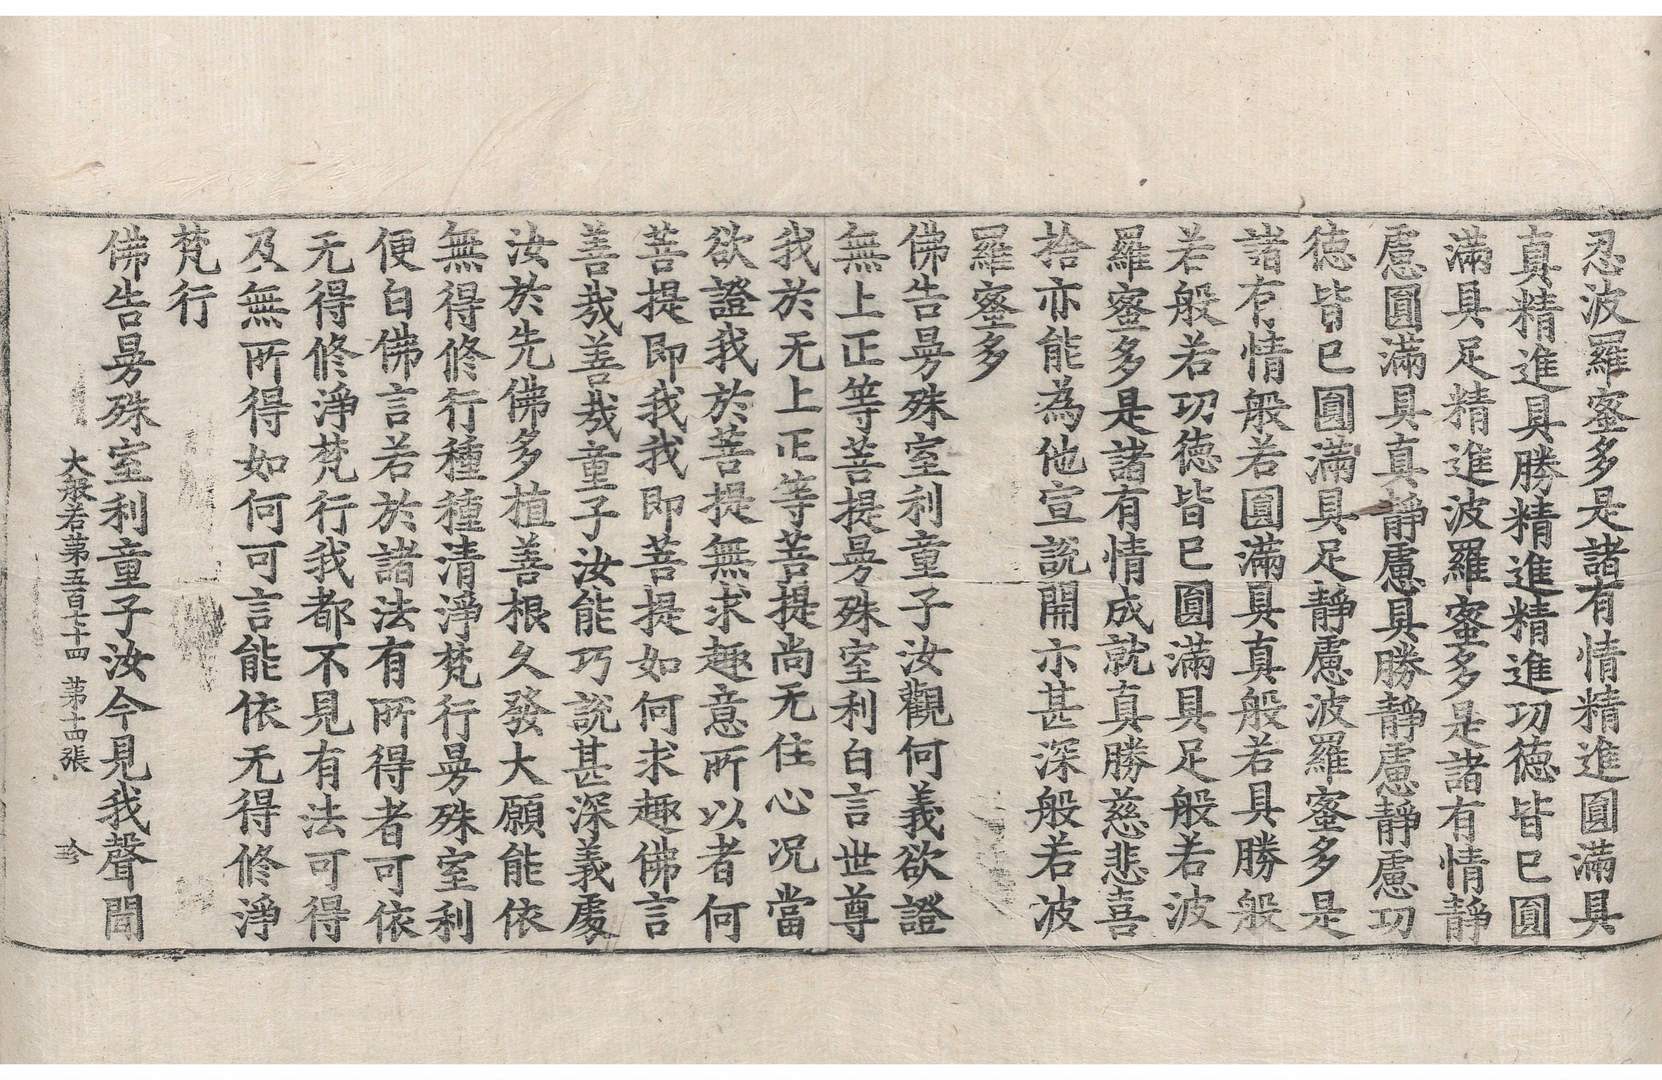 忍波羅蜜多是諸有情精進圓滿具
真精進具勝精進精進功德皆已圓
滿具足精進波羅蜜多是諸有情靜
慮圓滿具真靜慮具勝靜慮靜慮功
德皆已圓滿具足靜慮波羅蜜多是
諸有情般若圓滿具真般若具勝般
若般若功德皆已圓滿具足般若波
羅蜜多是諸有情成就真勝慈悲喜
捨亦能為他宣說開示甚深般若波
羅蜜多
佛告曼殊室利童子汝觀何義欲證
無上正等菩提曼殊室利白言世尊
我於无上正等菩提尚无住心况當
欲證我於菩提無求趣意所以者何
菩提即我我即菩提如何求趣佛言
善哉善哉童子汝能巧說甚深義處
汝於先佛多植善根久發大願能依
無得修行種種清淨梵行曼殊室利
便白佛言若於諸法有所得者可依
无得修淨梵行我都不見有法可得
及無所得如何可言能依无得修淨
梵行
佛告曼殊室利童子汝今見我聲聞
大般若第五百七十四 第十四張 珍